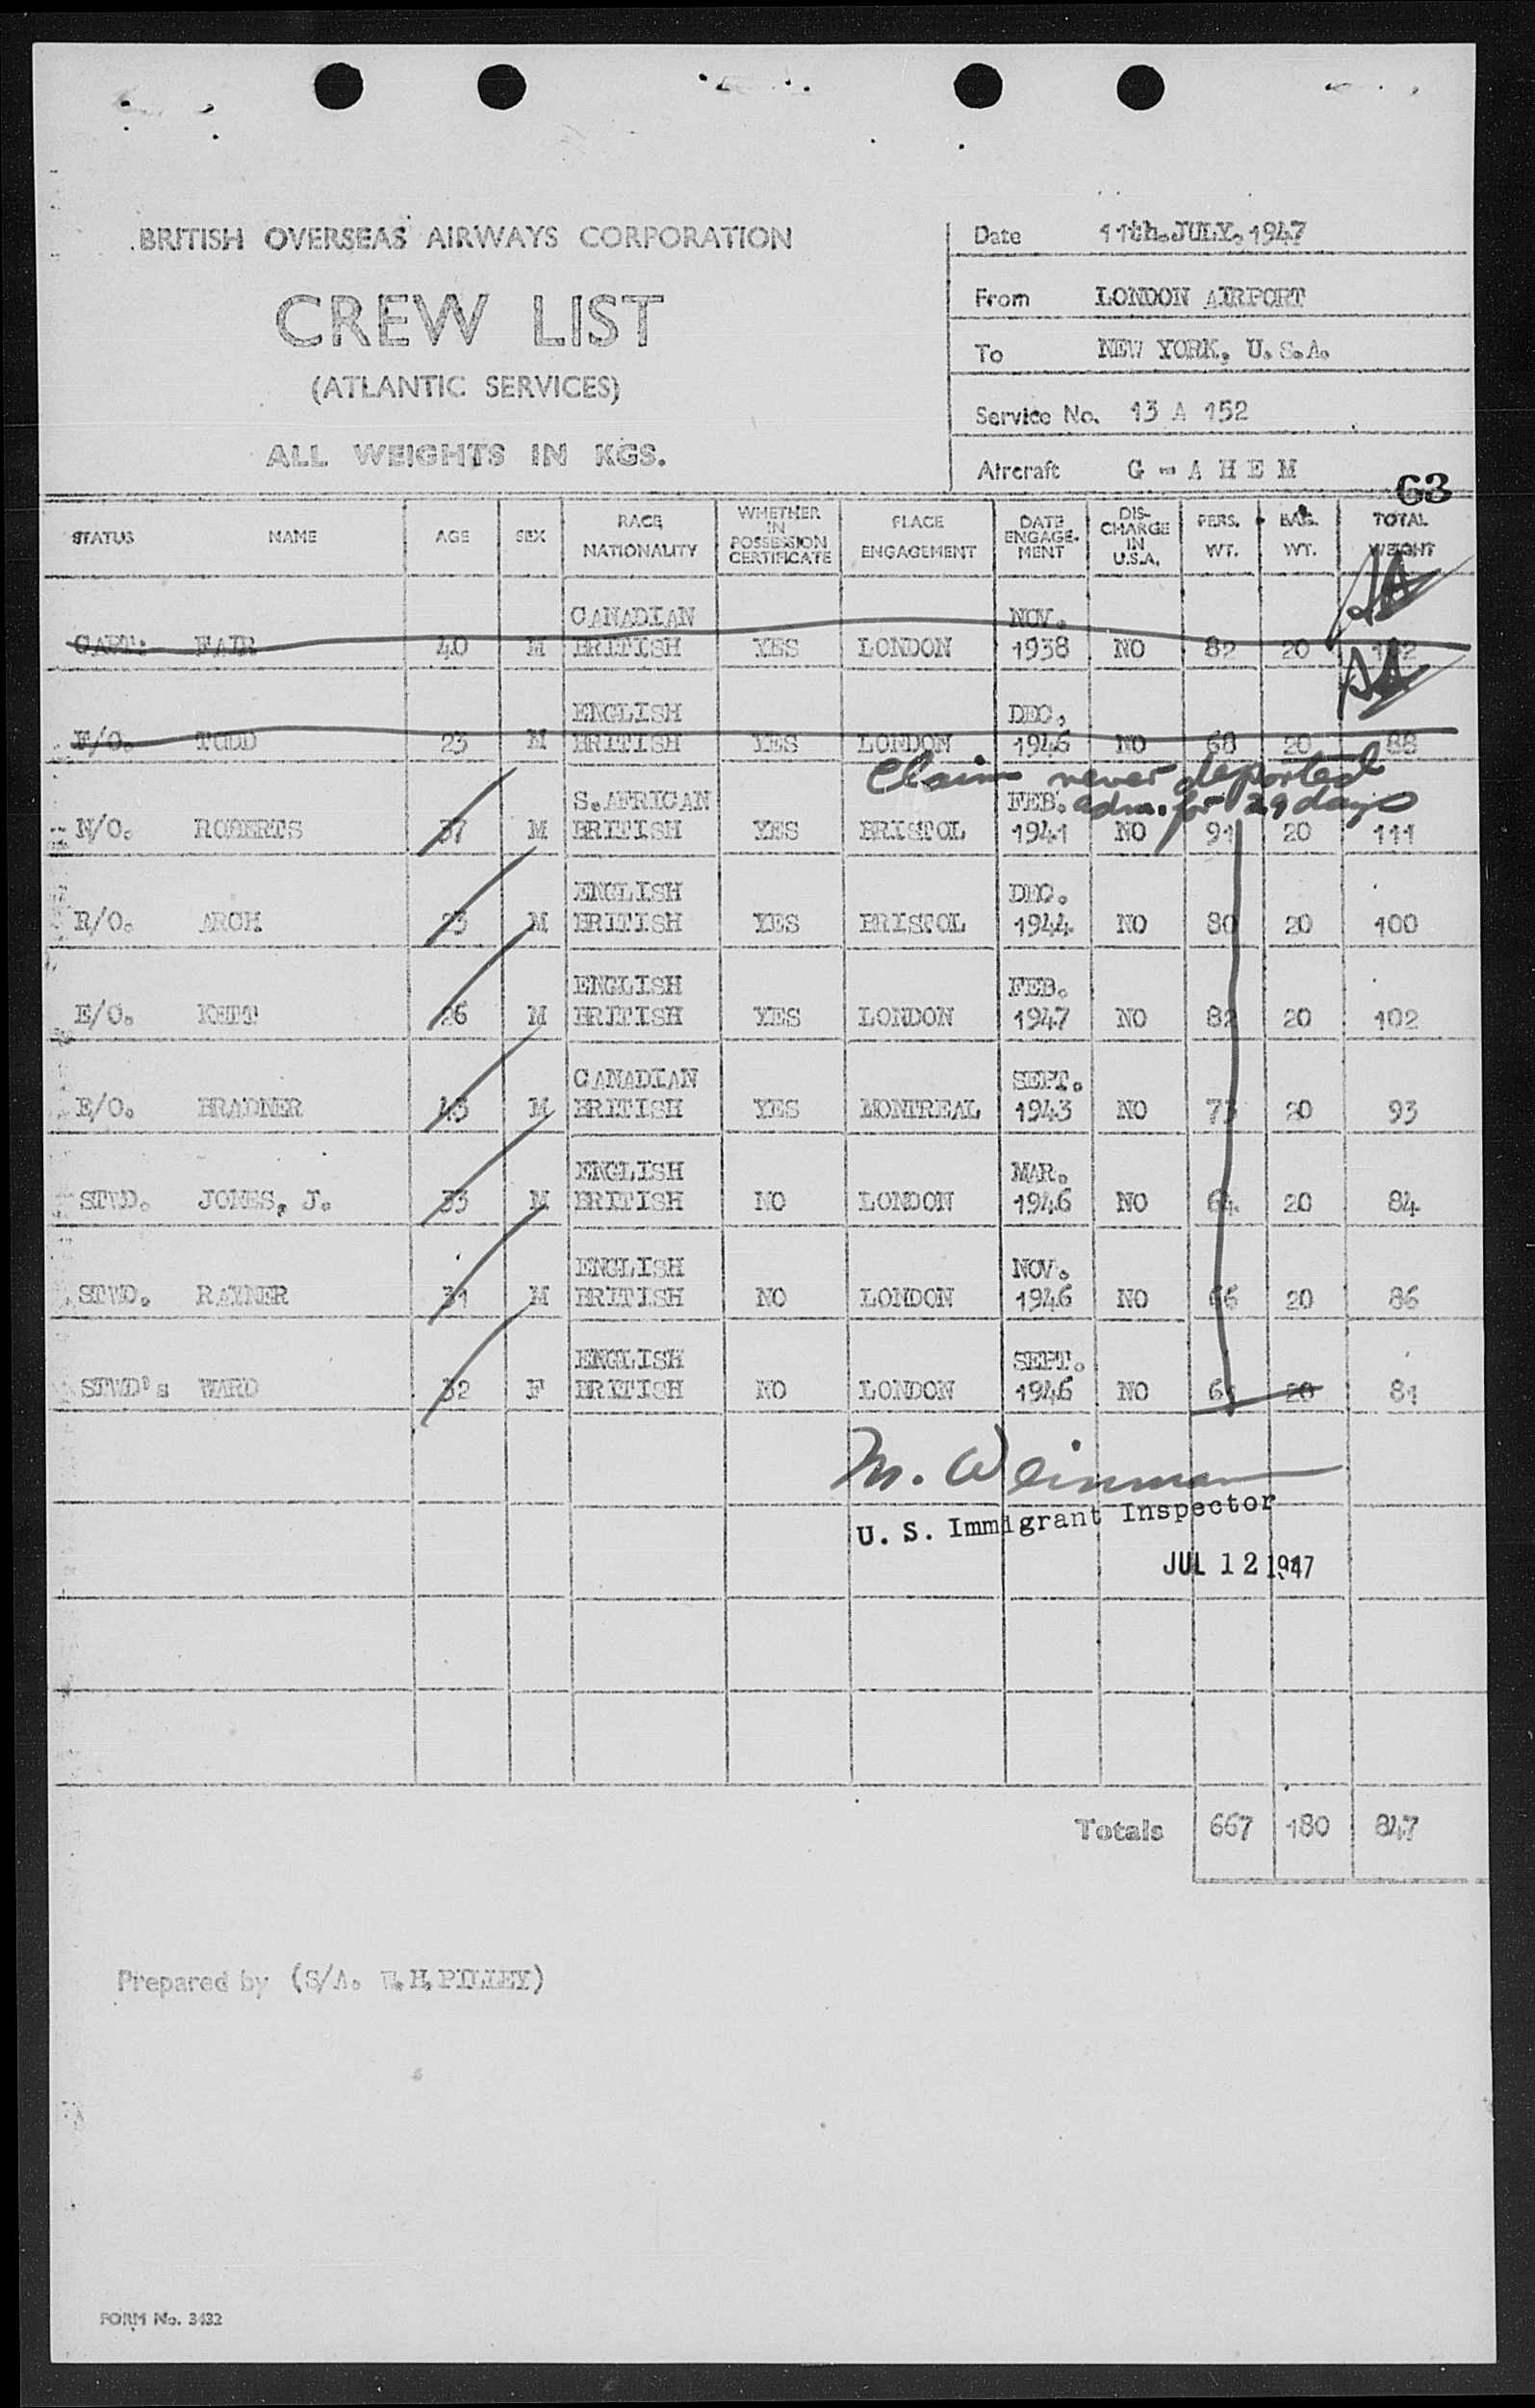 BRITISH OVERSEAS AIRWAYS CORPORATION
CREW LIST
(ATLANTIC SERVICES)
ALL WEIGHTS IN KGS.
Date 11th.JULY.1947
From LONDON AIRPORT
To NEW YORK, U.S.A.
Service No. 13 A 152
Aircraft G - A H E M
63
STATUS NAME AGE SEX RACE NATIONALITY WHETHER IN POSSESSION CERTIFICATE PLACE ENGAGEMENT DATE ENGAGE-MENT DIS-CHARGE IN U.S.A. PERS. WT. BAG. WT. TOTAL WEIGHT
CANADIAN NOV.
CAPT: FAIR 40 M BRITISH YES LONDON 1938 NO 82 20 102
ENGLISH DEC.
F/O. TODD 23 M BRITISH YES LONDON 1946 NO 68 20 88
Claim never deported
S.AFRICAN FEB. adm. for 29 days
N/O. ROBERTS 37 M BRITISH YES BRISTOL 1941 NO 91 20 111
ENGLISH DEC.
R/O. ARCH 23 M BRITISH YES BRISTOL 1944 NO 80 20 100
ENGLISH FEB.
E/O. KETT 26 M BRITISH YES LONDON 1947 NO 82 20 102
CANADIAN SEPT.
E/O. BRADNER 43 M BRITISH YES MONTREAL 1943 NO 73 20 93
ENGLISH MAR.
STWD. JONES, J. 33 M BRITISH NO LONDON 1946 NO 64 20 84
ENGLISH NOV.
STWD. RAYNER 31 M BRITISH NO LONDON 1946 NO 66 20 86
ENGLISH SEPT.
STWD's WARD 32 F BRITISH NO LONDON 1946 NO 61 20 81
M. Weinman
U. S. Immigrant Inspector
JUL 12 1947
Totals 667 180 847
Prepared by (S/A. PILLEY)
FORM No. 3432